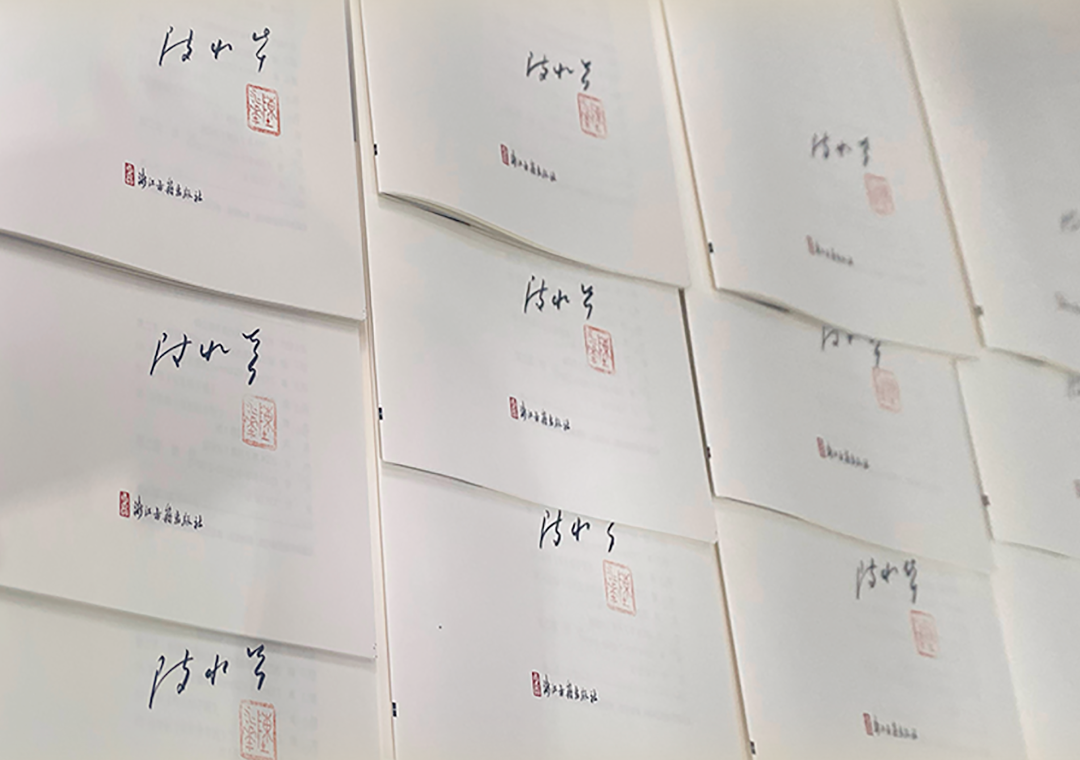 陈水华
陳水華
浙江古籍出版社
陈水华
陳水華
浙江古籍出版社
陈水华
陳水華
陈水华
陳水華
浙江古籍出版社
陈水华
陳水華
浙江古籍出版社
陈水华
陳水華
浙江古籍出版社
陈水华
陈水华
浙江古籍出版社
陈水华
浙江古籍出版社